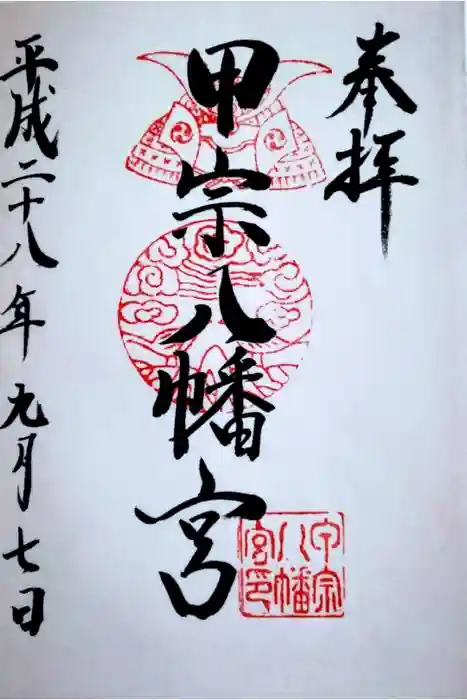 奉拝
甲宗八幡宮
平成二十八年九月七日
甲宗
八幡
宮印